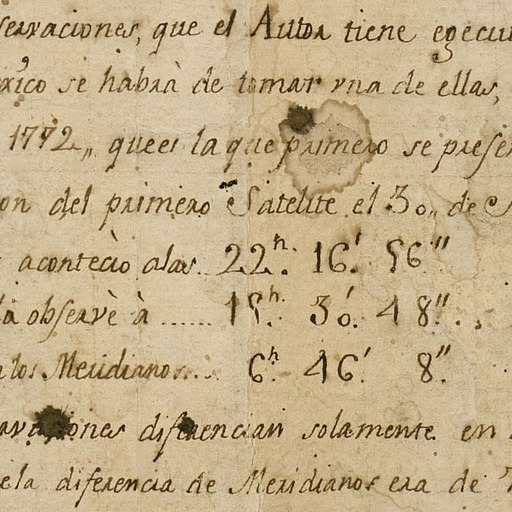 servaciones, que el Autor tiene egecu
xico se habrà de tomar vna de ellas,
1772,, que es la que primero se presen
on del primero Satelite el 30,, de
acontecìo alas.. 22.ʰ 16.′ 56″
la observè à ...... 15.ʰ 30.′ 48″..
a los Meridianos.... 6.ʰ 46.′ 8.″
vaciones diferencian solamente en
e la diferencia de Meridianos era de